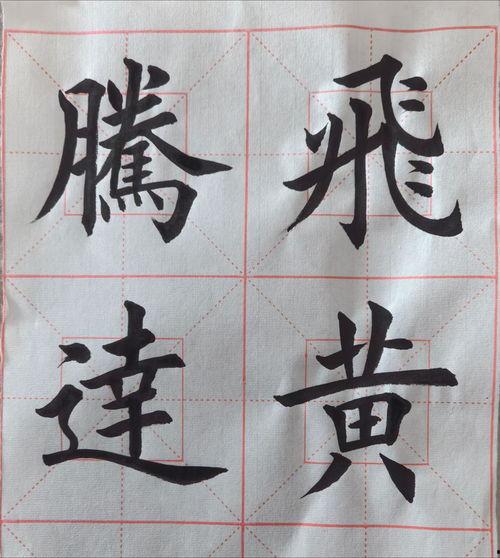 飛黄
騰達